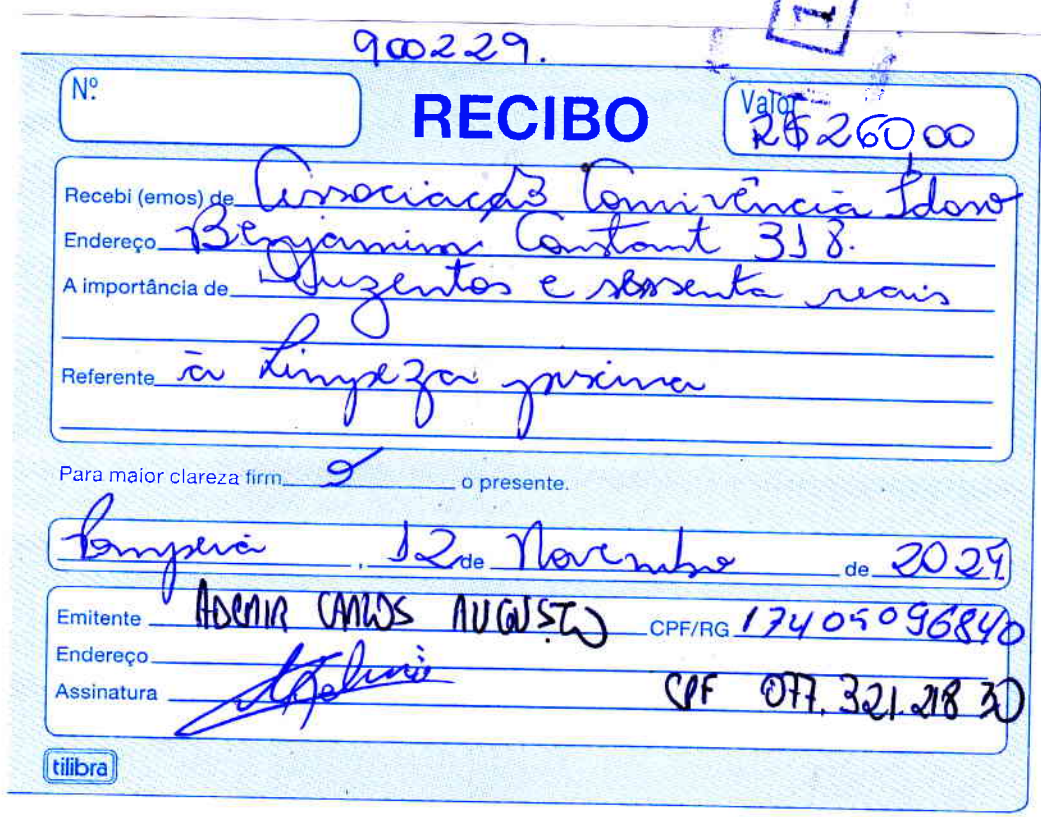 900229.
Nº
RECIBO
Valor
R$ 260,00
Recebi (emos) de Associação Convivência Idoso
Endereço Benjamim Constant 318.
A importância de Duzentos e sessenta reais
Referente à Limpeza piscina
Para maior clareza firm o o presente.
Pompeia, 12 de Novembro de 2024
Emitente ADEMIR CARLOS AUGUSTO CPF/RG 17405096840
Endereço
Assinatura CPF 077.321.218 30
tilibra